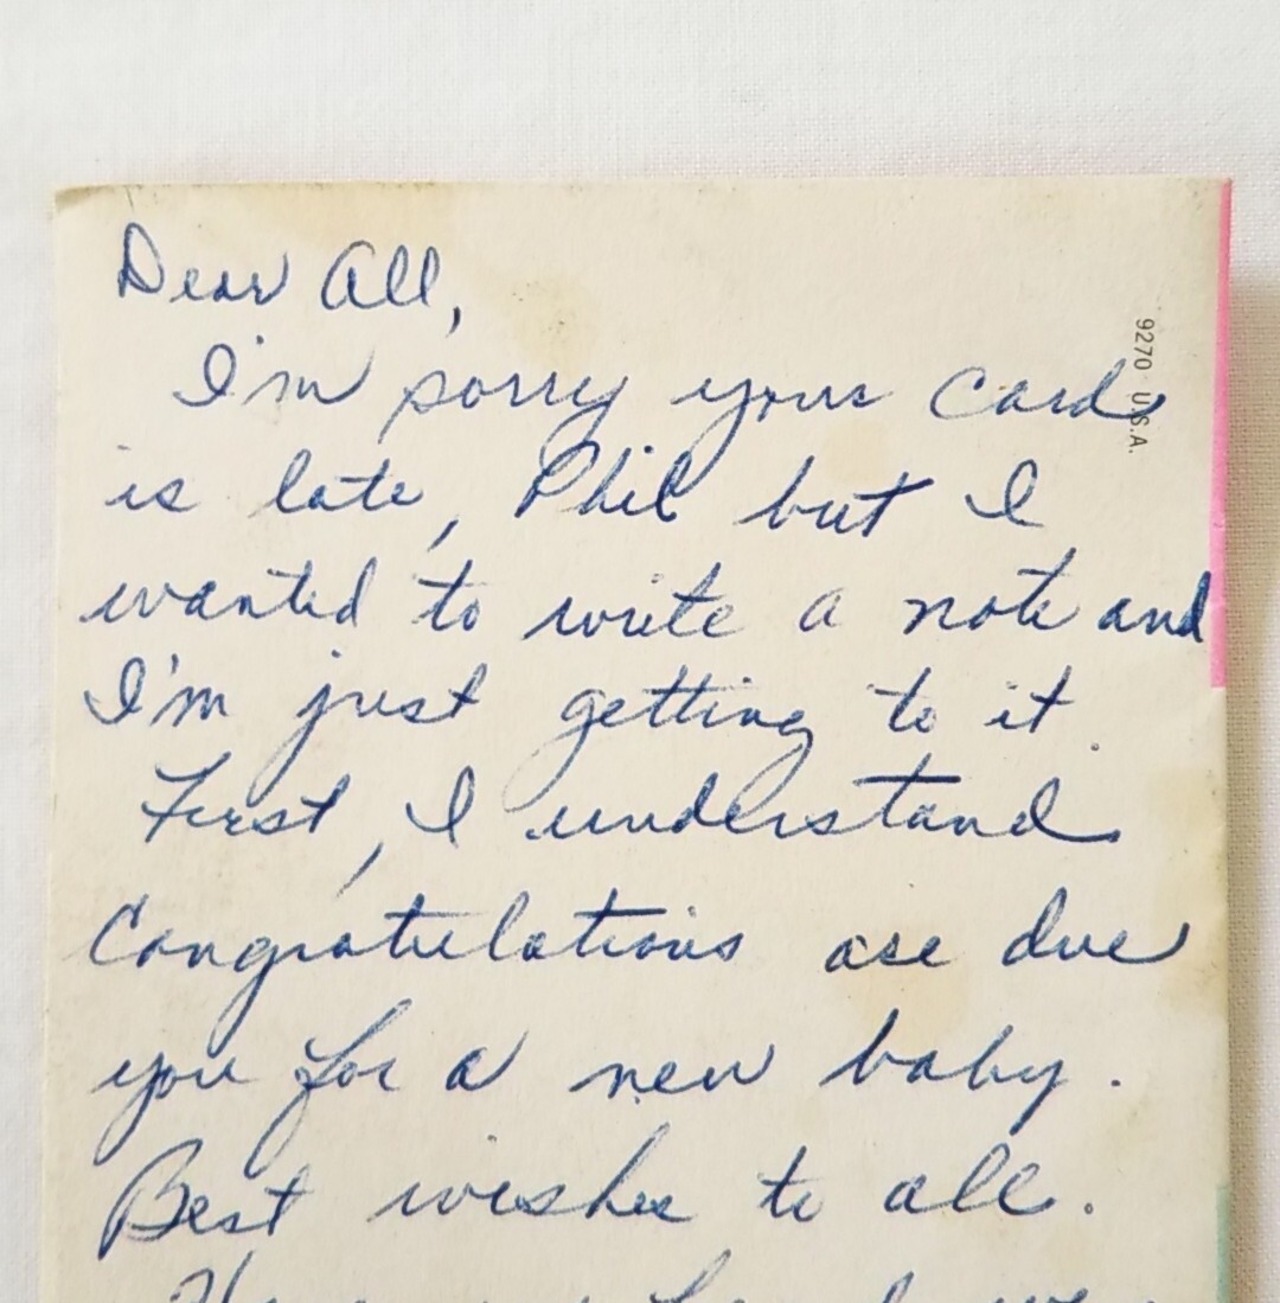 Dear All,
I'm sorry your card
is late, Phil but I
wanted to write a note and
I'm just getting to it.
First, I understand
Congratulations are due
you for a new baby.
Best wishes to all.
9270 U.S.A.